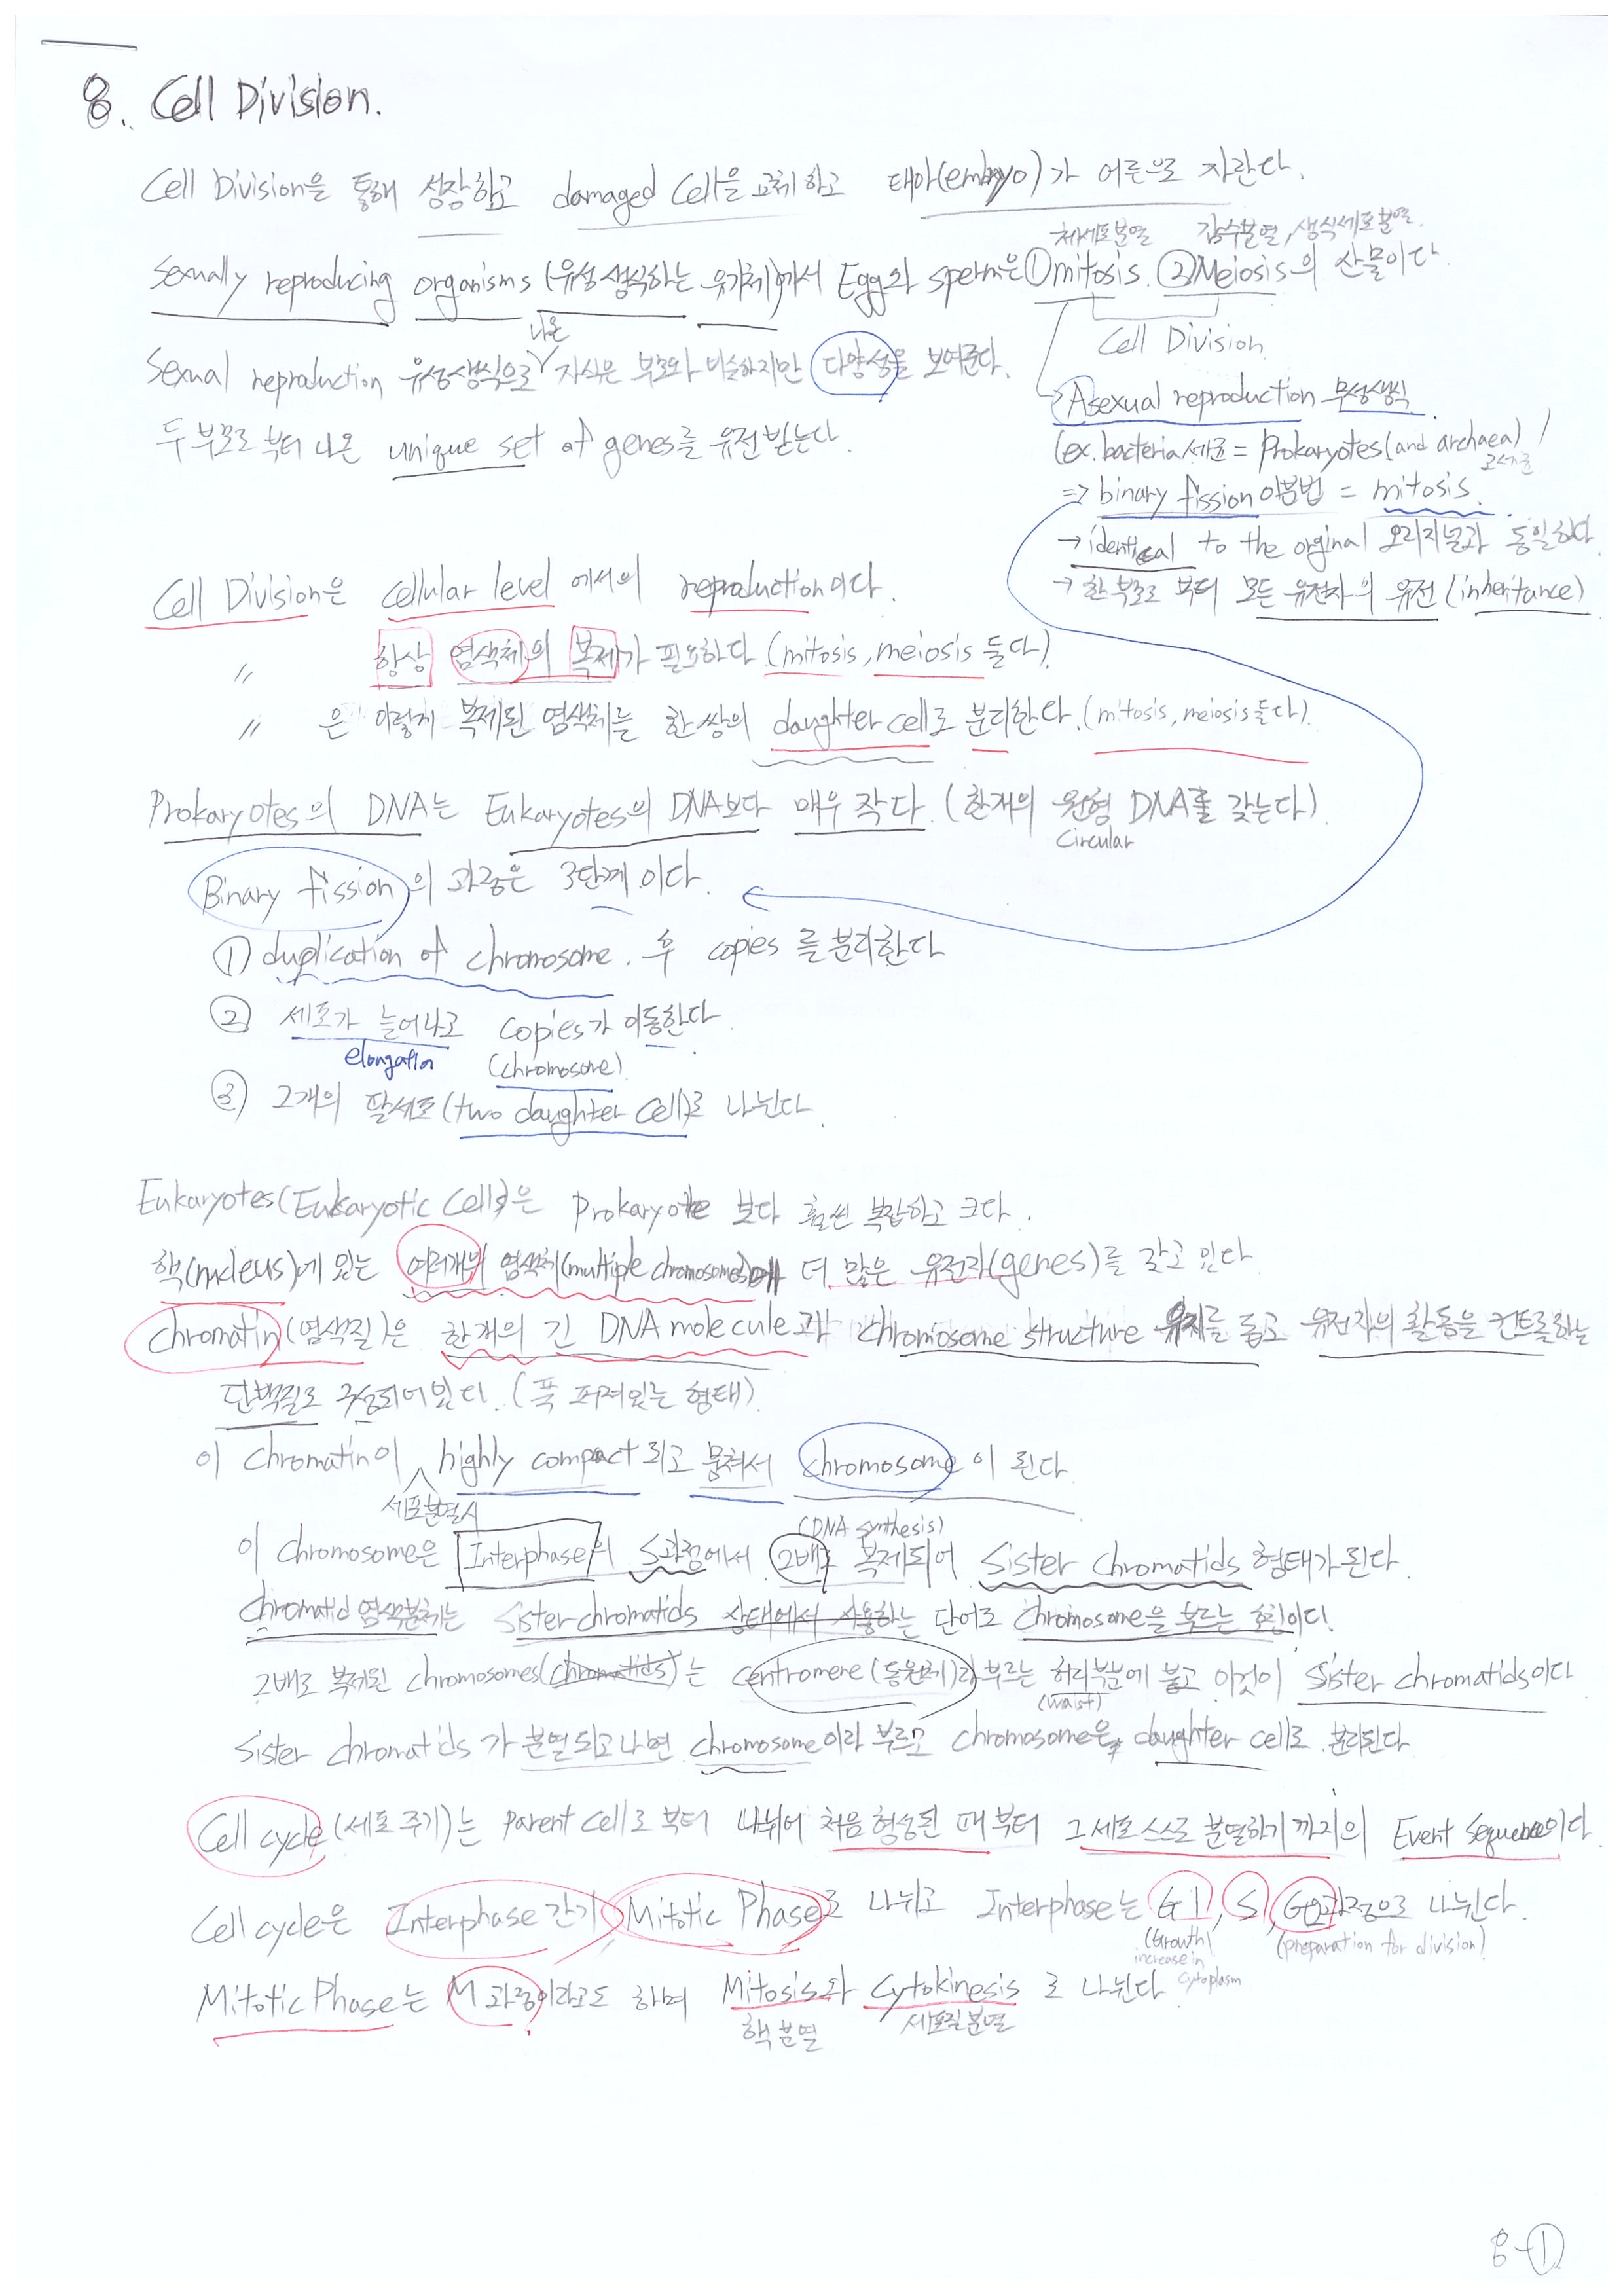 8. Cell Division.
Cell Division을 통해 성장하고 damaged Cell을 교체하고 태아(embryo)가 어른으로 자란다.
체세포분열 감수분열, 생식세포분열
Sexually reproducing organisms (유성생식하는 유기체)에서 Egg와 sperm은 ① mitosis. ② Meiosis의 산물이다
Cell Division
나온
Sexual reproduction 유성생식으로 자식은 부모와 비슷하지만 다양성을 보여준다.
두 부모로 부터 나온 unique set of genes를 유전받는다.
Asexual reproduction 무성생식
(ex. bacteria세균 = Prokaryotes(and archaea)
고세균
⇒ binary fission 이분법 = mitosis.
→ identical to the orginal 오리지널과 동일하다
→ 한 부모로 부터 모든 유전자의 유전 (inheritance)
Cell Division은 cellular level 에서의 reproduction이다.
〃 항상 염색체의 복제가 필요하다 (mitosis, meiosis 둘다).
〃 은 이렇게 복제된 염색체는 한 쌍의 daughter cell로 분리한다. (mitosis, meiosis 둘다).
Prokaryotes의 DNA는 Eukaryotes의 DNA보다 매우 작다. (한개의 원형 DNA를 갖는다).
Circular
Binary fission의 과정은 3단계 이다.
① duplication of chromosome. 후 copies 를 분리한다
② 세포가 늘어나고 copies가 이동한다.
elongation (chromosome)
③ 2개의 딸세포 (two daughter cell)로 나뉜다.
Eukaryotes(Eukaryotic Cells)은 Prokaryote 보다 훨씬 복잡하고 크다.
핵(nucleus)에 있는 여러개의 염색체(multiple chromosomes)에 더 많은 유전자(genes)를 갖고 있다
Chromatin(염색질)은 한개의 긴 DNA molecule과 chromosome structure 유지를 돕고 유전자의 활동을 컨트롤하는
단백질로 구성되어있다. (푹 퍼져있는 형태).
이 chromatin이 highly compact 되고 뭉쳐서 chromosome 이 된다.
세포분열시
(DNA synthesis)
이 chromosome은 Interphase의 S과정에서 2배로 복제되어 Sister chromatids 형태가 된다.
Chromatid 염색분체는 Sister chromatids 상태에서 사용하는 단어로 chromosome을 부르는 호칭이다.
2배로 복제된 chromosomes(chromatids)는 centromere(동원체)라 부르는 허리부분에 붙고 이것이 sister chromatids이다
(waist)
Sister chromatids가 분열되고 나면 chromosome이라 부르고 chromosome은 daughter cell로 분리된다
Cell cycle(세포 주기)는 parent cell로 부터 나뉘어 처음 형성된 때 부터 그 세포 스스로 분열하기 까지의 Event sequence이다.
Cell cycle은 Interphase 간기 Mitotic Phase로 나뉘고 Interphase는 G1, S, G2과정으로 나뉜다.
(Growth) (preparation for division)
increase in
cytoplasm
Mitotic Phase는 M 과정이라고도 하며 Mitosis와 cytokinesis 로 나뉜다.
핵분열 세포질분열
8-①